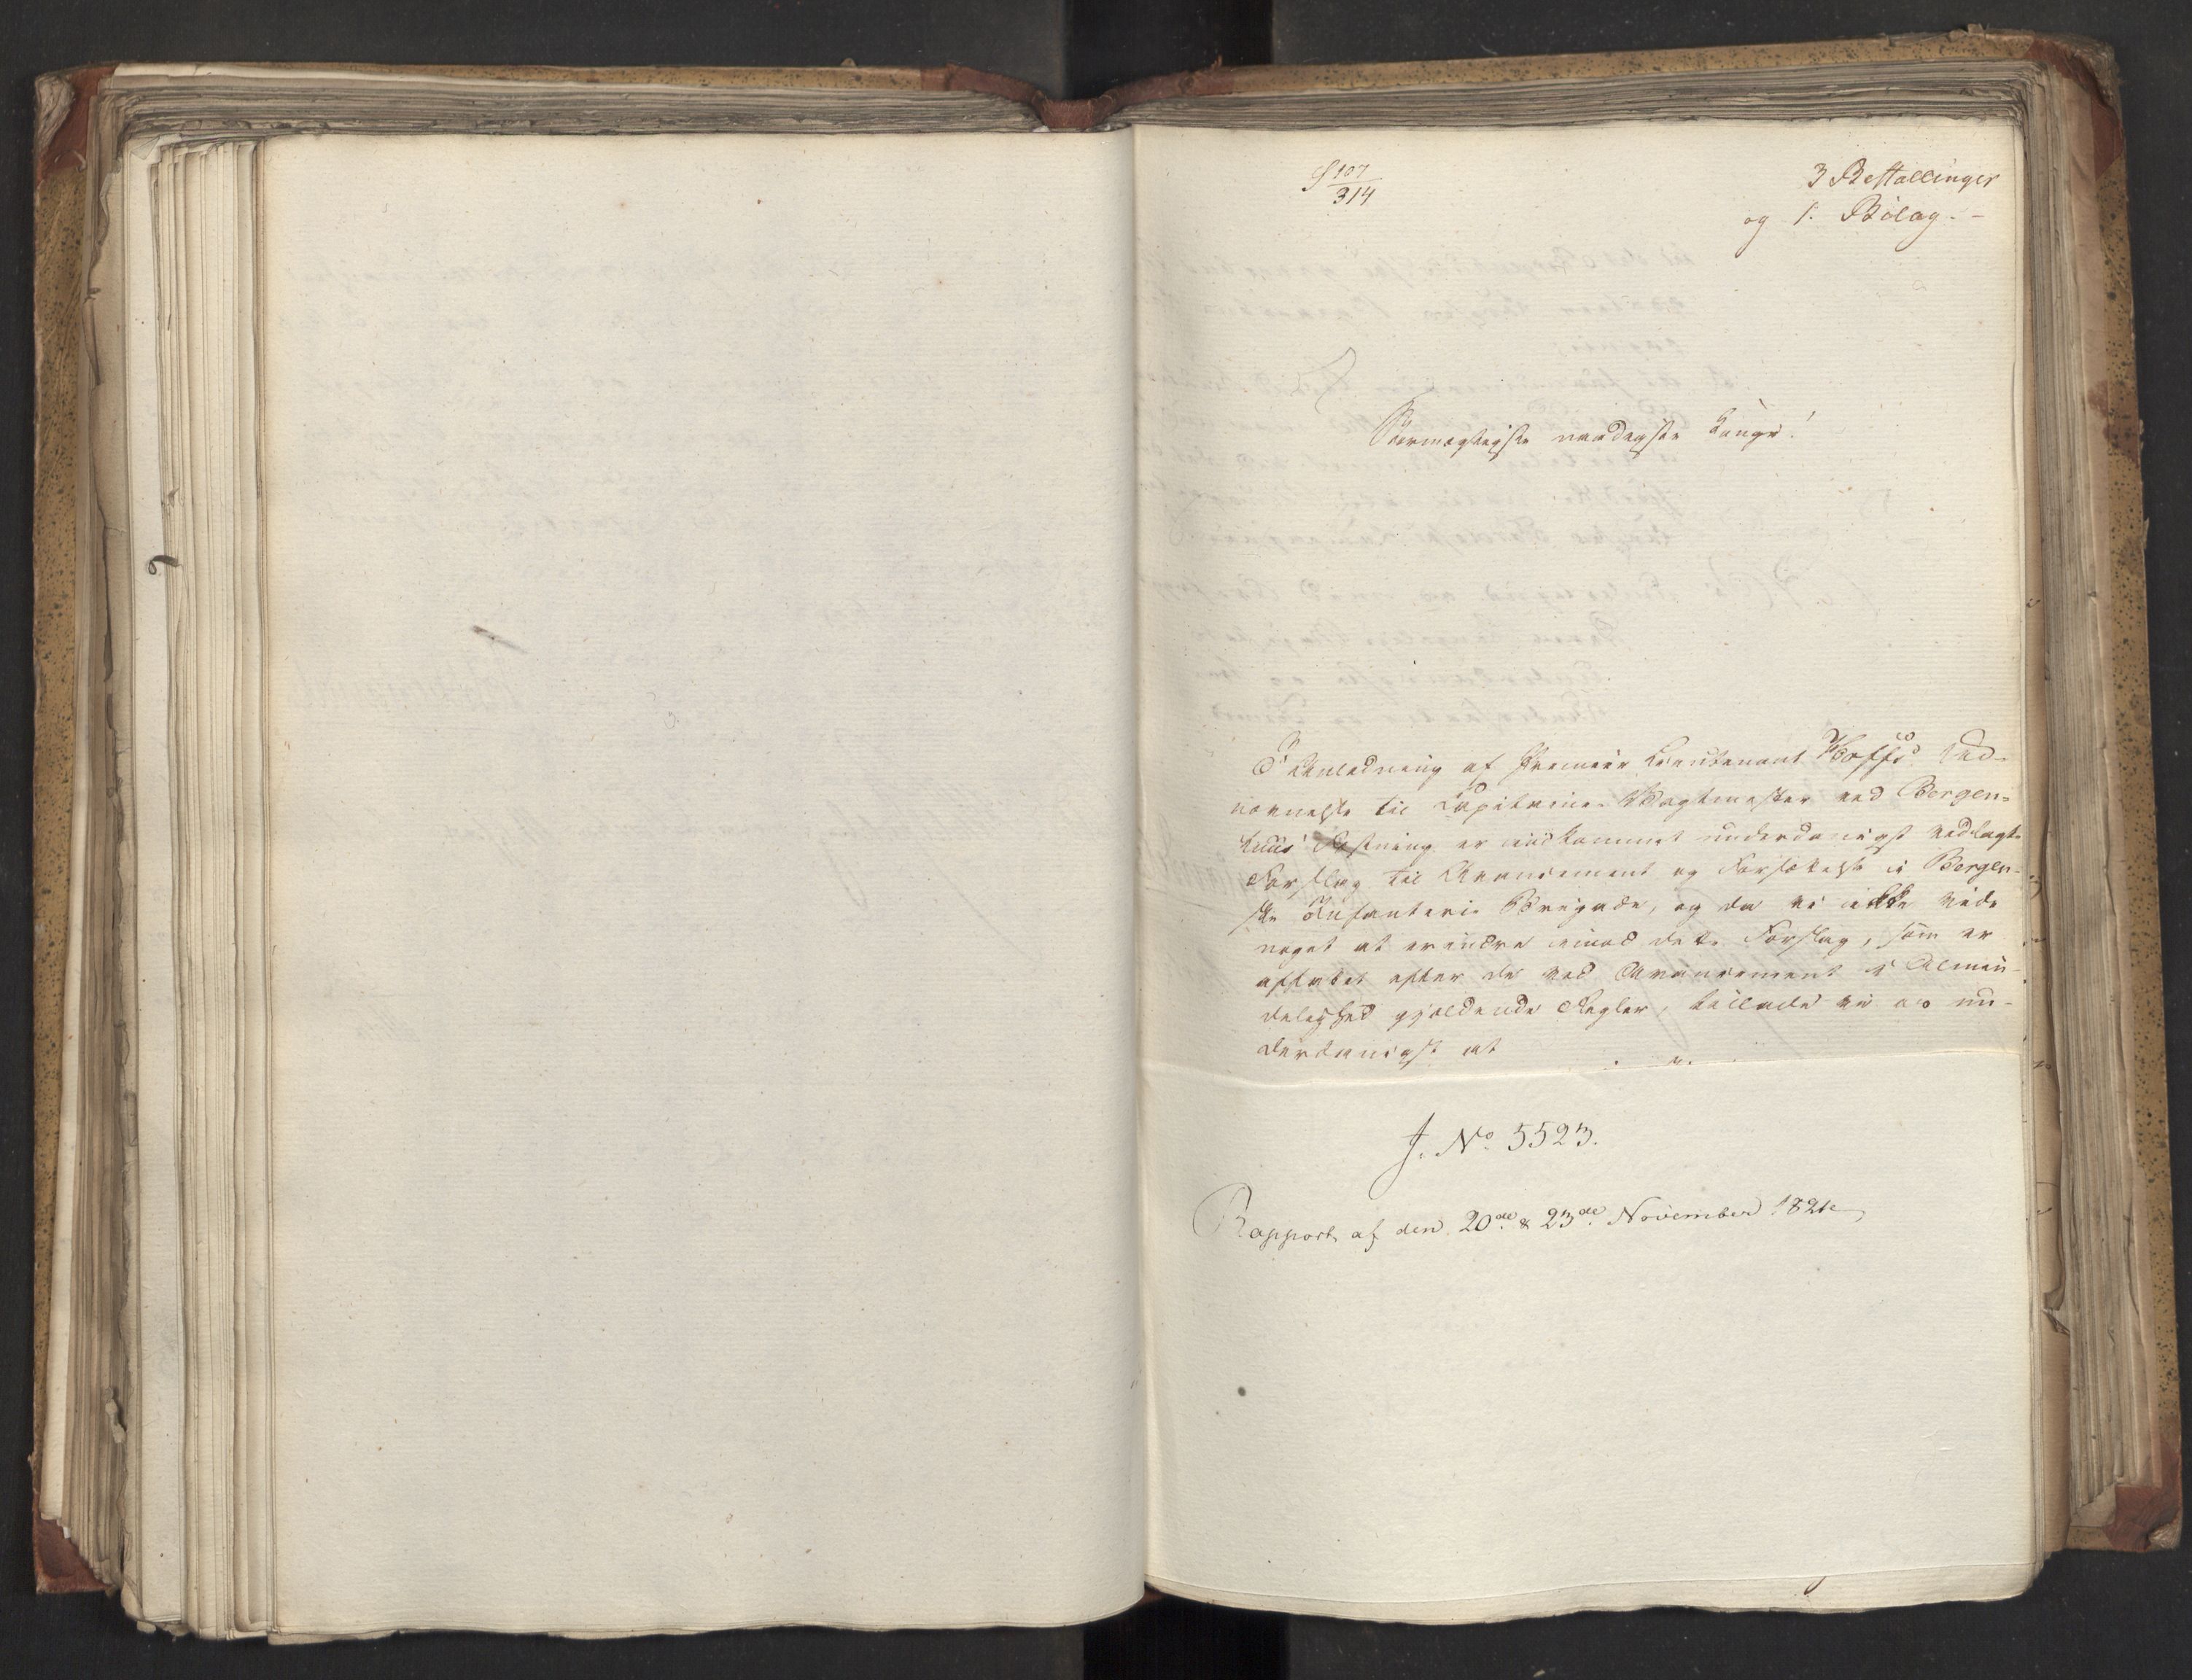 S 107
314
3 Bestallinger
og 1. Bilag. -
Stormægtigste naadigste Konge!
I Anledning af Premier Lieutenant Ud-
nævnelse til Capitaine Vagtmester ved Bergen-
huus Fæstning er indkommet underdanigst vedlagte
Forslag til Avancement og Forsættelse i Bergen-
ske Infanterie Brigade, og da vi ikke vide
noget at erindre imod dette Forslag, som er
affattet efter de ved Avancement i Almin-
delighed gjældende Regler, tillade vi os un-
derdanigst at
J. No. 5523.
Rapport af den 20de & 23de November 1821